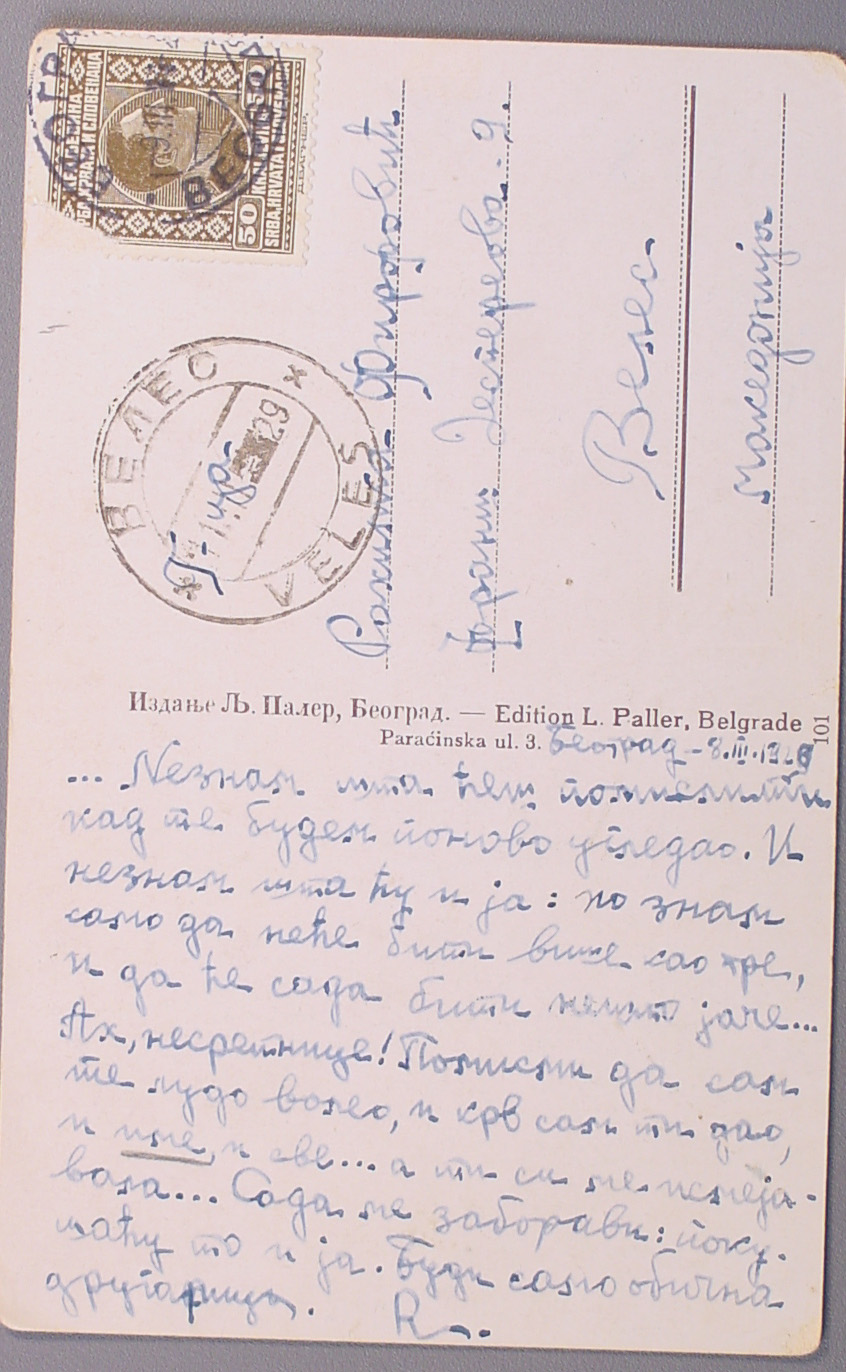 БЕОГРАД
КРАЉЕВИНА
СРБА, ХРВАТА И СЛОВЕНАЦА
50
SRBA, HRVATA I SLOVENACA
50
ВЕЛЕС
29
VELES
Г-ца
Рахила
Велес
Македонија
Издање Љ. Палер, Београд. — Edition L. Paller, Belgrade
Paraćinska ul. 3.
101
Београд – 8.III.1929
... Незнам шта ћеш помислити
кад те будем поново угледао. И
незнам шта ћу и ја : но знам
само да неће бити више као пре,
и да ће сада бити нешто јаче...
Ах, несретнице! Помисли да сам
те лудо волео, и крв сам ти дао,
и име, и све... а ти си ме исмеја-
вала... Сада ме заборави : поку-
шаћу то и ја. Буди само обична
другарица. R